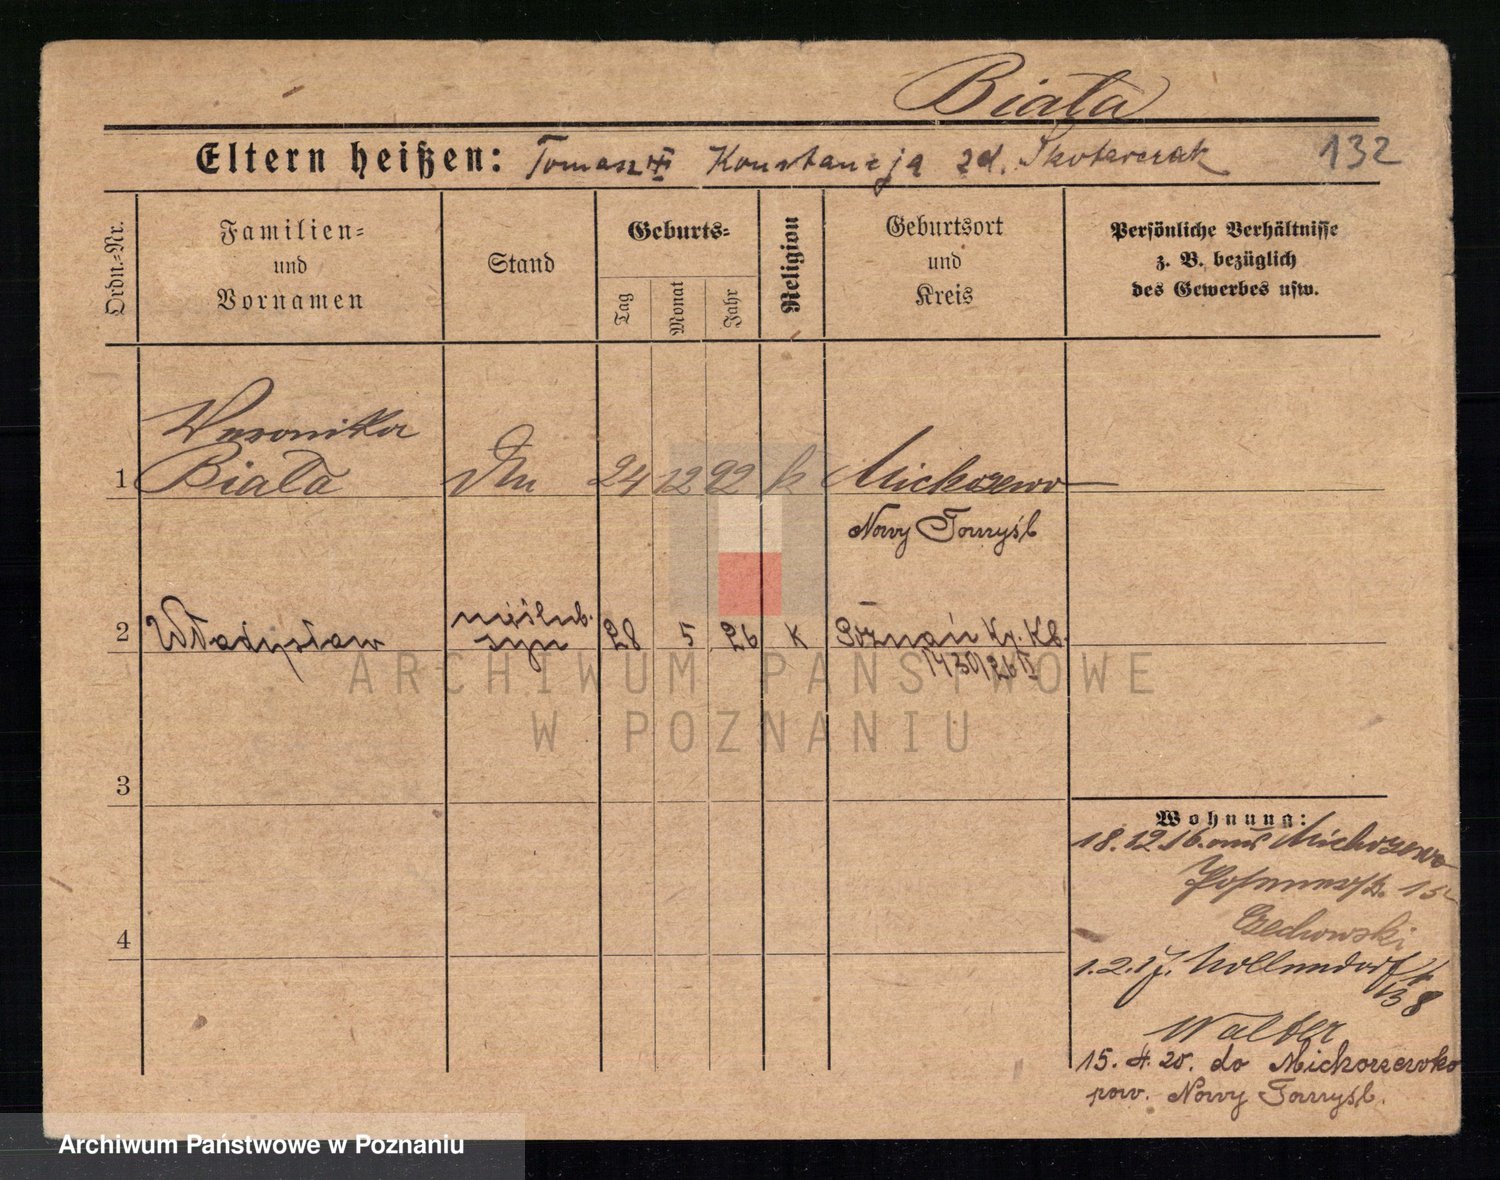 Biała
Eltern heißen: Tomasz Konstancja zd. Skotarczak 132
Ordn.-Nr.
Familien-
und
Vornamen
Stand
Geburts-
Tag
Monat
Jahr
Religion
Geburtsort
und
Kreis
Persönliche Verhältnisse
z. B. bezüglich
des Gewerbes usw.
Weronika
1 Biała 24 12 92 k Michorzewo
Nowy Tomyśl
nieślub.
2 Władysław syn 28 5 26 k Poznań Kr. Kb.
1430/26 II
3
Wohnung:
18.12.16. aus Michorzewo
Czechowski
4
1.2.17. Nollendorfstr
38
Walter
15.4.20. do Michorzewko
pow. Nowy Tomyśl.
ARCHIWUM PAŃSTWOWE
W POZNANIU
Archiwum Państwowe w Poznaniu